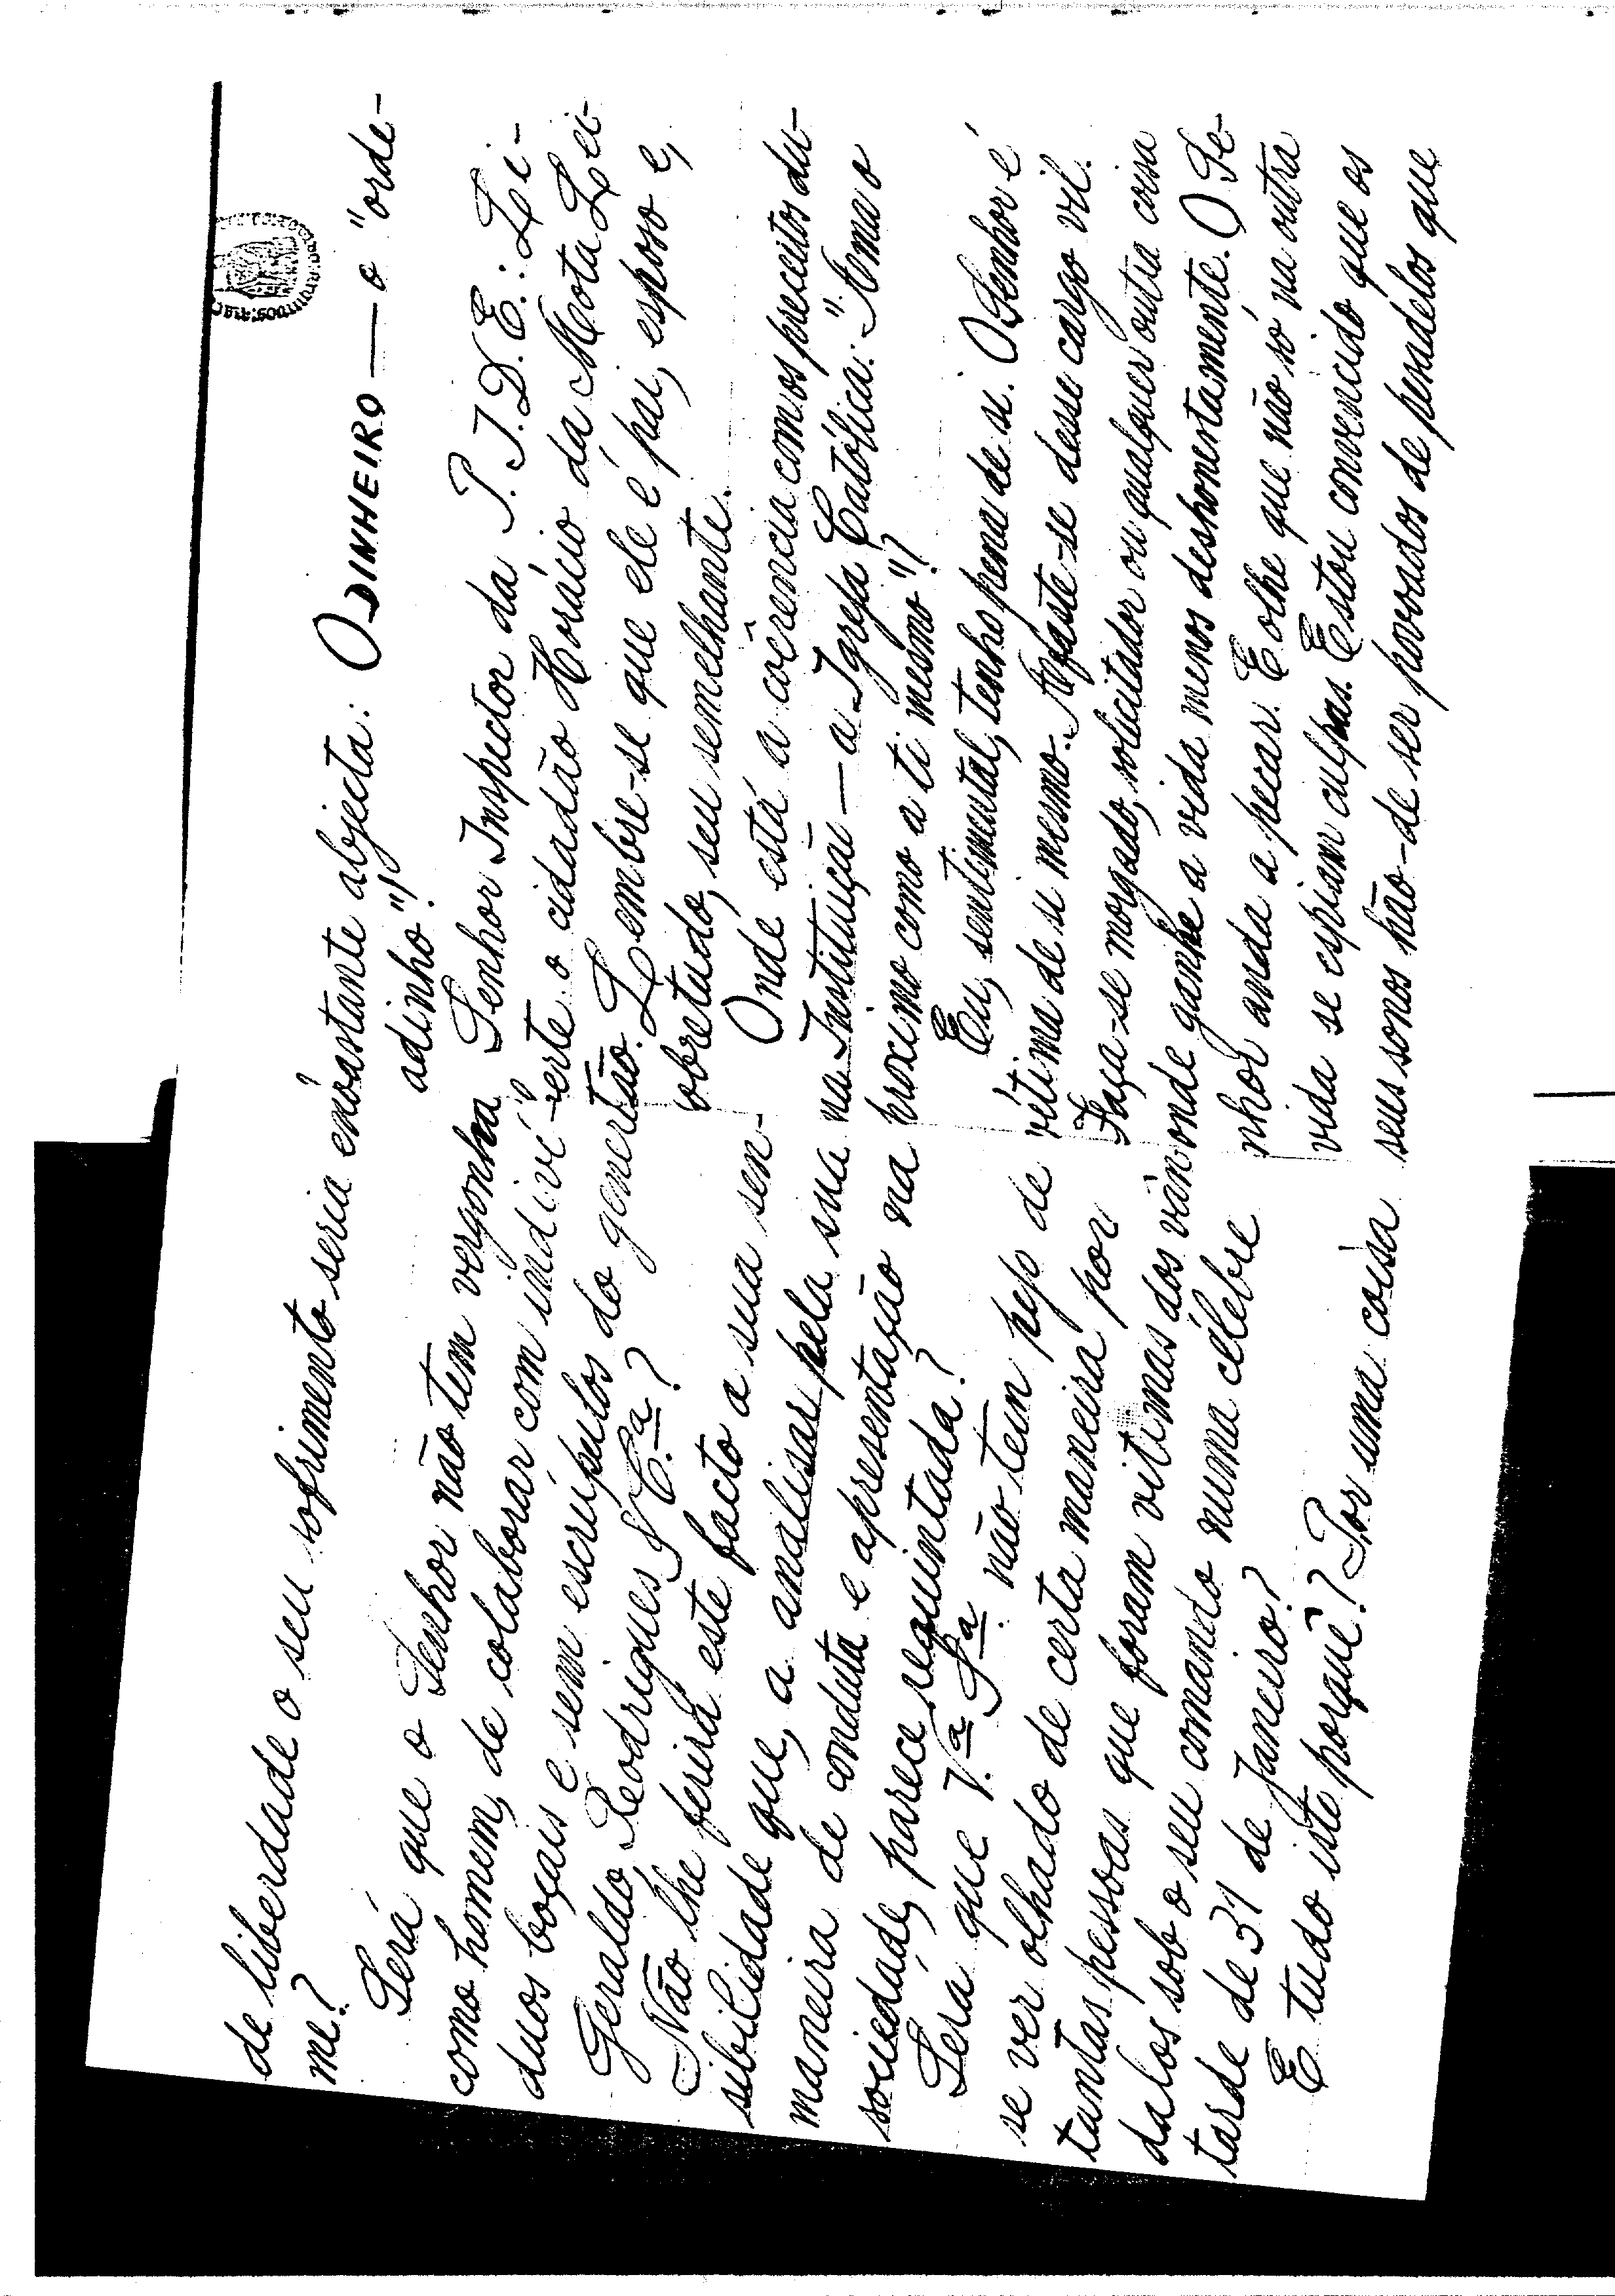 de liberdade o seu sofrimento seria enór-
me?
Será que o Senhor não tem vergonha
como homem, de colaborar com indiví-
duos boçais e sem escrúpulos do género
Geraldo, Rodrigues & C.ª?
Não lhe ferirá este facto a sua sen-
sibilidade que, a analisar pela sua
maneira de conduta e apresentação na
sociedade, parece requintada?
Será que V.ª S.ª não tem pejo de
se ver olhado de certa maneira por
tantas pessoas que foram vítimas dos vân-
dalos sob o seu comando numa célebre
tarde de 31 de Janeiro?
E tudo isto porquê? Por uma coisa
bastante abjecta: O DINHEIRO — o "orde-
adinho"!
Senhor Inspector da P.I.D.E.: Li-
erte o cidadão Horácio da Mota Lei-
tão. Lembre-se que ele é pai, esposo e,
sobretudo, seu semelhante.
Onde está a coêrencia com os preceitos du-
na Instituição — a Igreja Católica: "Ama o
proximo como a ti mesmo"?
Eu, sentimental, tenho pena de si. O Senhor é
vítima de si mesmo. Afaste-se desse cargo vil.
Faça-se morgado, solicitador ou qualquer outra coisa
onde ganhe a vida menos deshonestamente. O Se-
nhor anda a pecar. E olhe que não só na outra
vida se espiam culpas. Estou convencido que os
seus sonos hão-de ser povoados de pesadelos que